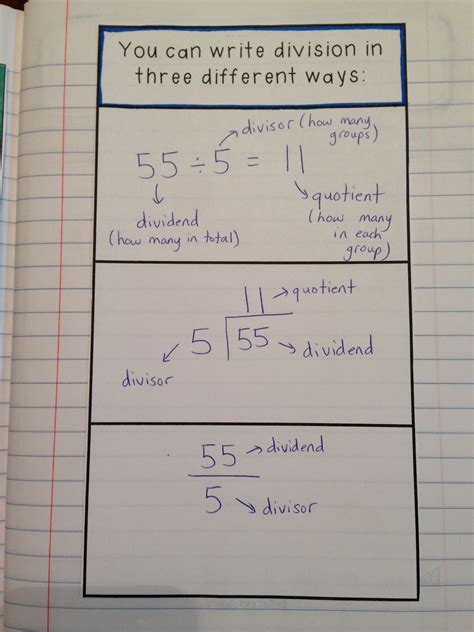 You can write division in
three different ways:
divisor (how many
groups)
55 ÷ 5 = 11
dividend
(how many in total)
quotient
(how many
in each
group)
11 quotient
5 55 dividend
divisor
55 dividend
5 divisor